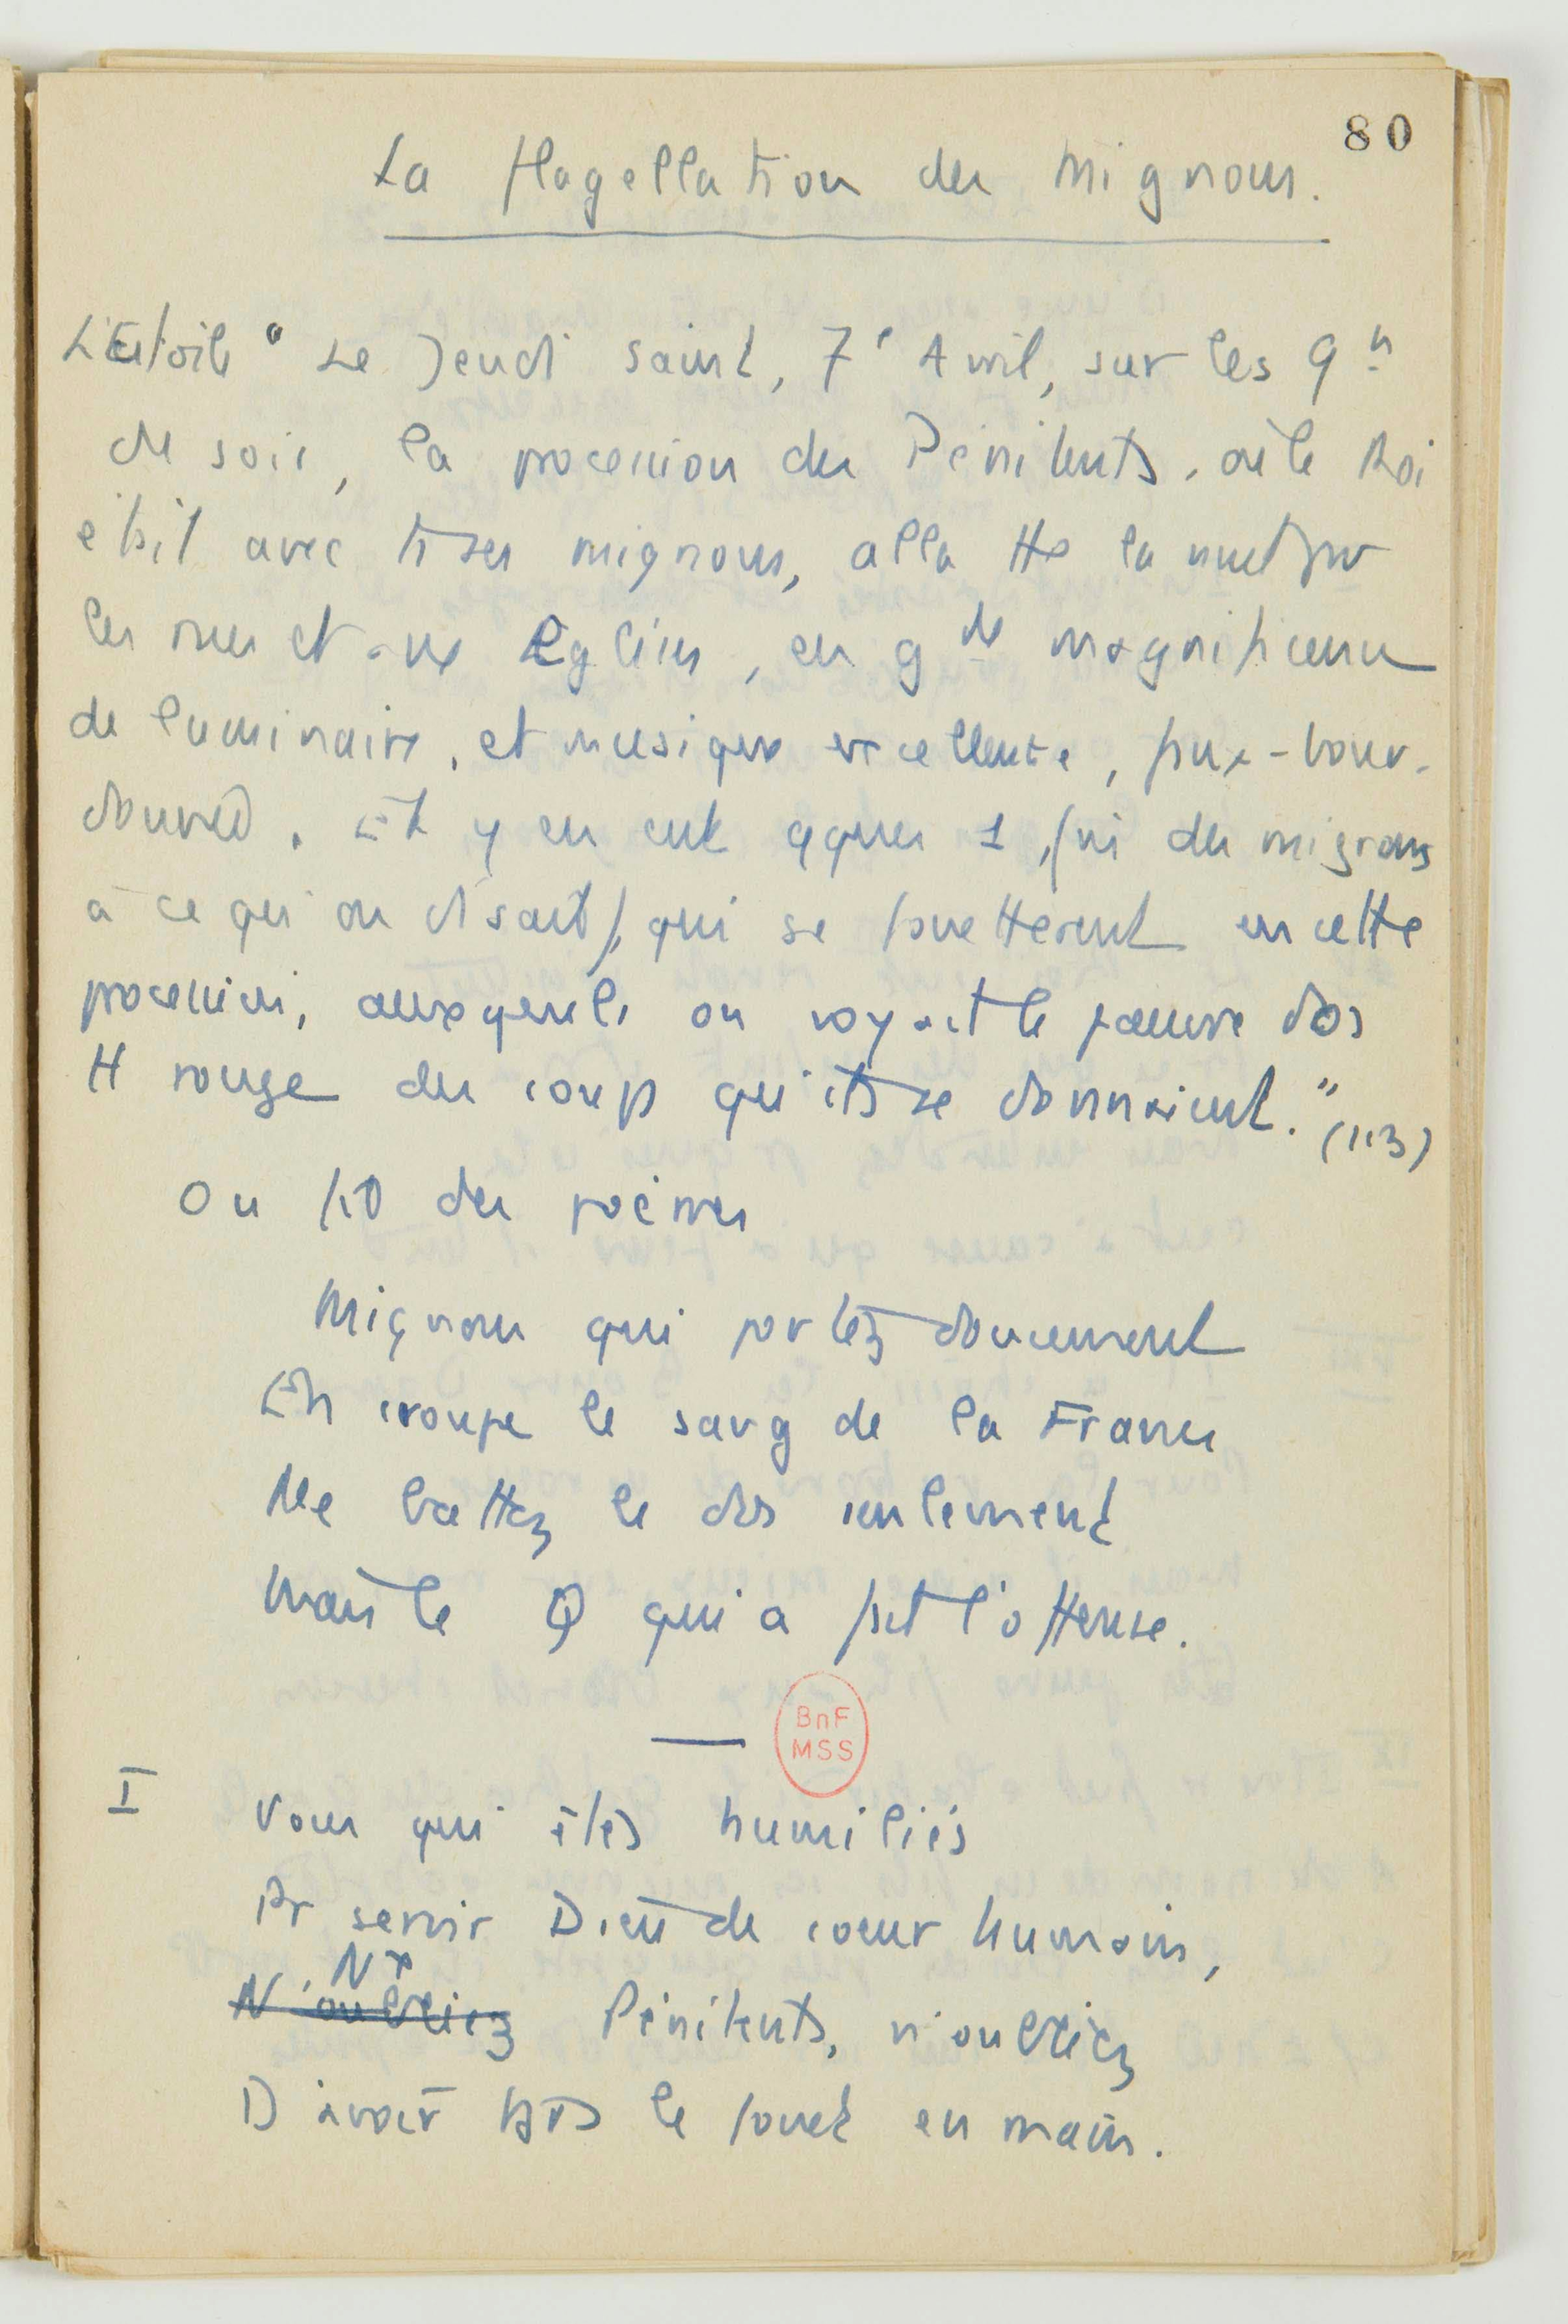 80
La Flagellation des Mignons.
L'Estoile " Le Jeudi Saint, 7e Avril, sur les 9 h
du soir, la procession des Pénitents, où le Roi
était avec ts ses mignons, alla tte la nuit par
les rues et aux Eglises, en gde magnificence
de luminaire, et musique excellente, faux-bour-
donnée. Et y en eut qques 1, (ni des mignons
à ce qu'on disait), qui se fouettèrent en cette
procession, auxquels on voyait le pauvre dos
tt rouge des coups qu'ils se donnaient." (113)
On fit des poèmes
Mignons qui portez doucement
En croupe le sang de la France
Ne battez le dos seulement
Mais le Q qui a fait l'offense.
BnF
MSS
I Vous qui êtes humiliés
Pr servir Dieu de coeur humain,
Nx
N'oubliez Pénitents, n'oubliez
D'avoir ts le fouet en main.